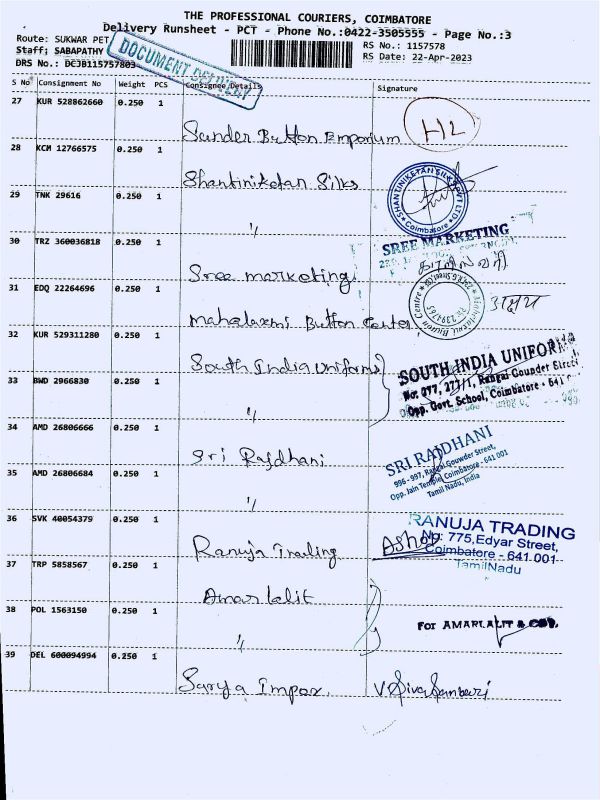 THE PROFESSIONAL COURIERS, COIMBATORE
Delivery Runsheet - PCT - Phone No.:0422-3505555 - Page No.:3
Route: SUKWAR PET
RS No.: 1157578
Staff; SABAPATHY
RS Date: 22-Apr-2023
DRS No.: DCJB115757803
DOCUMENT DELIVERY
S No Consignment No Weight PCS Consignee Details Signature
27 KUR 528862660 0.250 1
Sunder Button Emporium
28 KCM 12766575 0.250 1
Shantiniketan Silks
SHANTINIKETAN SILKS PVT LTD
Coimbatore
29 TNK 29616 0.250 1
"
SREE MARKETING
30 TRZ 360036818 0.250 1
Sree marketing
31 EDQ 22264696 0.250 1
Mahalaxmi Button Center
32 KUR 529311280 0.250 1
South India Uniforms
SOUTH INDIA UNIFORM
No: 277, 277/1, Rangai Gounder Street
Opp. Govt. School, Coimbatore - 641
33 BWD 2966830 0.250 1
"
34 AMD 26806666 0.250 1
Sri Rajdhani
SRI RAJDHANI
996 - 997, Rangai Gouwder Street,
Opp. Jain Temple, Coimbatore - 641 001
Tamil Nadu, India
35 AMD 26806684 0.250 1
"
36 SVK 40054379 0.250 1
Ranuja Trading
Ashok
RANUJA TRADING
No: 775, Edyar Street,
Coimbatore - 641 001
TamilNadu
37 TRP 5858567 0.250 1
Amar lalit
38 POL 1563150 0.250 1
"
For AMARLALIT & CO.
39 DEL 600094994 0.250 1
Sarya Impex.